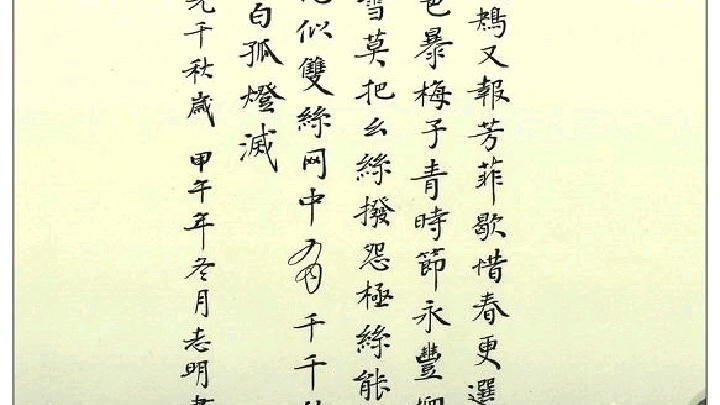 鴂又報芳菲歇惜春更選
色暴梅子青時節永豐柳
雪莫把幺絲撥怨極絲能
似雙絲网中有千千
白孤燈滅
千秋歲 甲午年冬月志明書